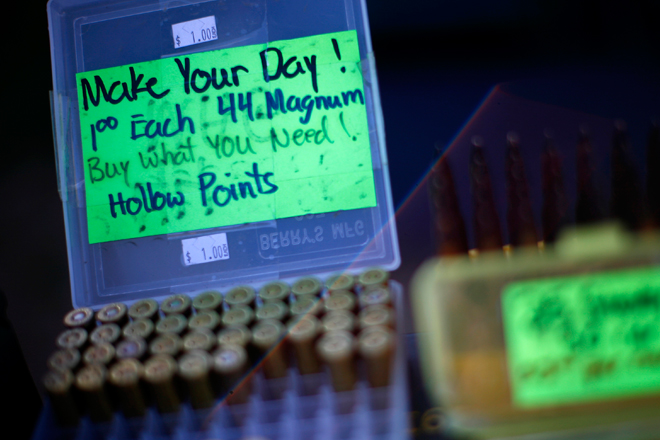 $ 1.00
Make Your Day!
1.00 Each 44 Magnum
Buy What You Need!
Hollow Points
$ 1.00
BERRY'S MFG